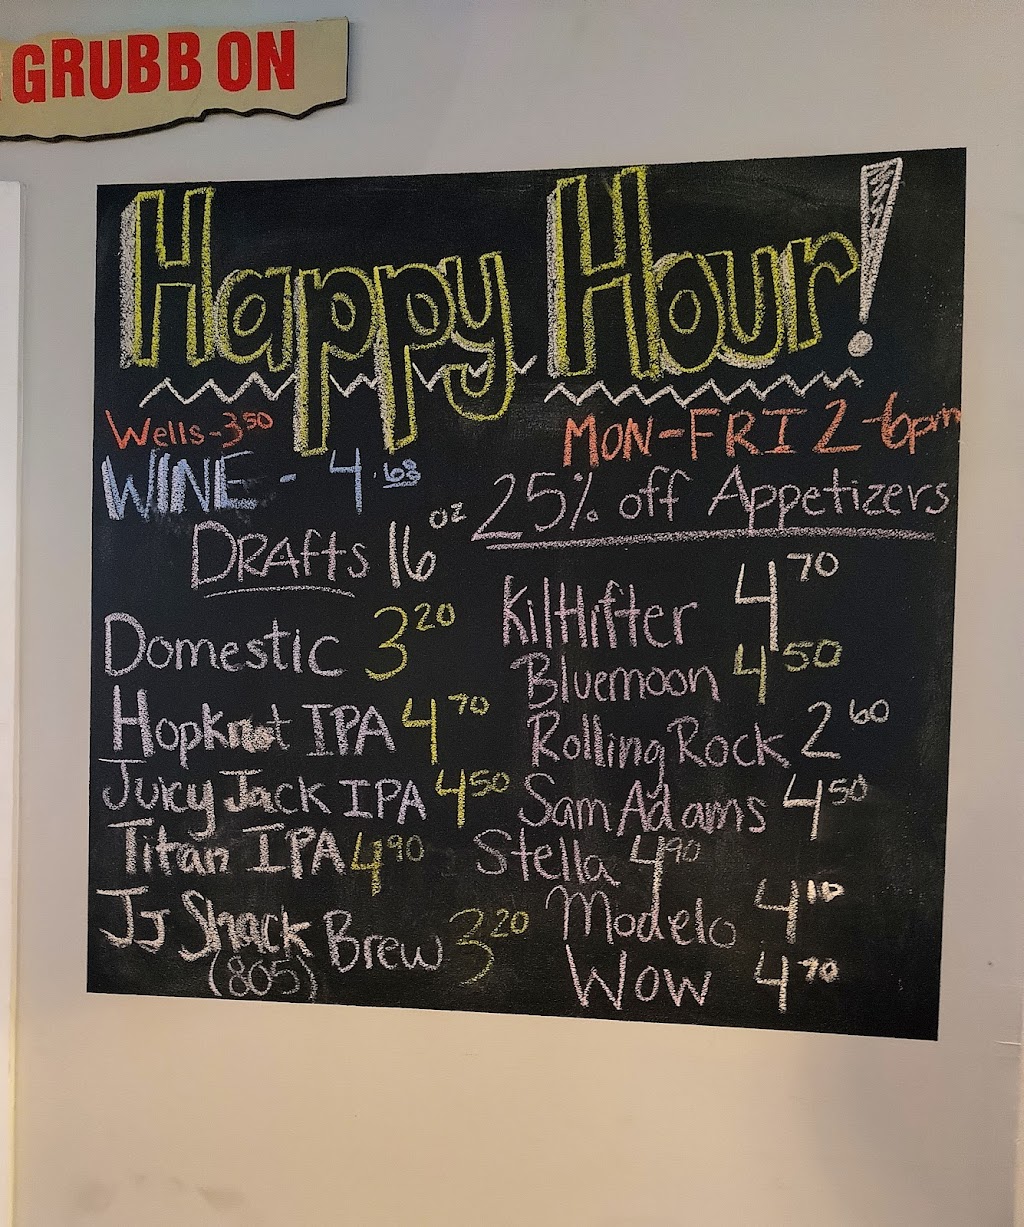 GRUBB ON
Happy Hour!
Wells-3.50
WINE - 4.68
MON-FRI 2-6pm
25% off Appetizers
DRAfts 16 oz
Domestic 3 20
Hopknot IPA 4 70
Juicy Jack IPA 4 50
Titan IPA 4 90
JJ Shack Brew 3 20
(805)
KiltHifter 4 70
Bluemoon 4 50
Rolling Rock 2 60
Sam Adams 4 50
Stella 4 90
Modelo 4 10
Wow 4 70